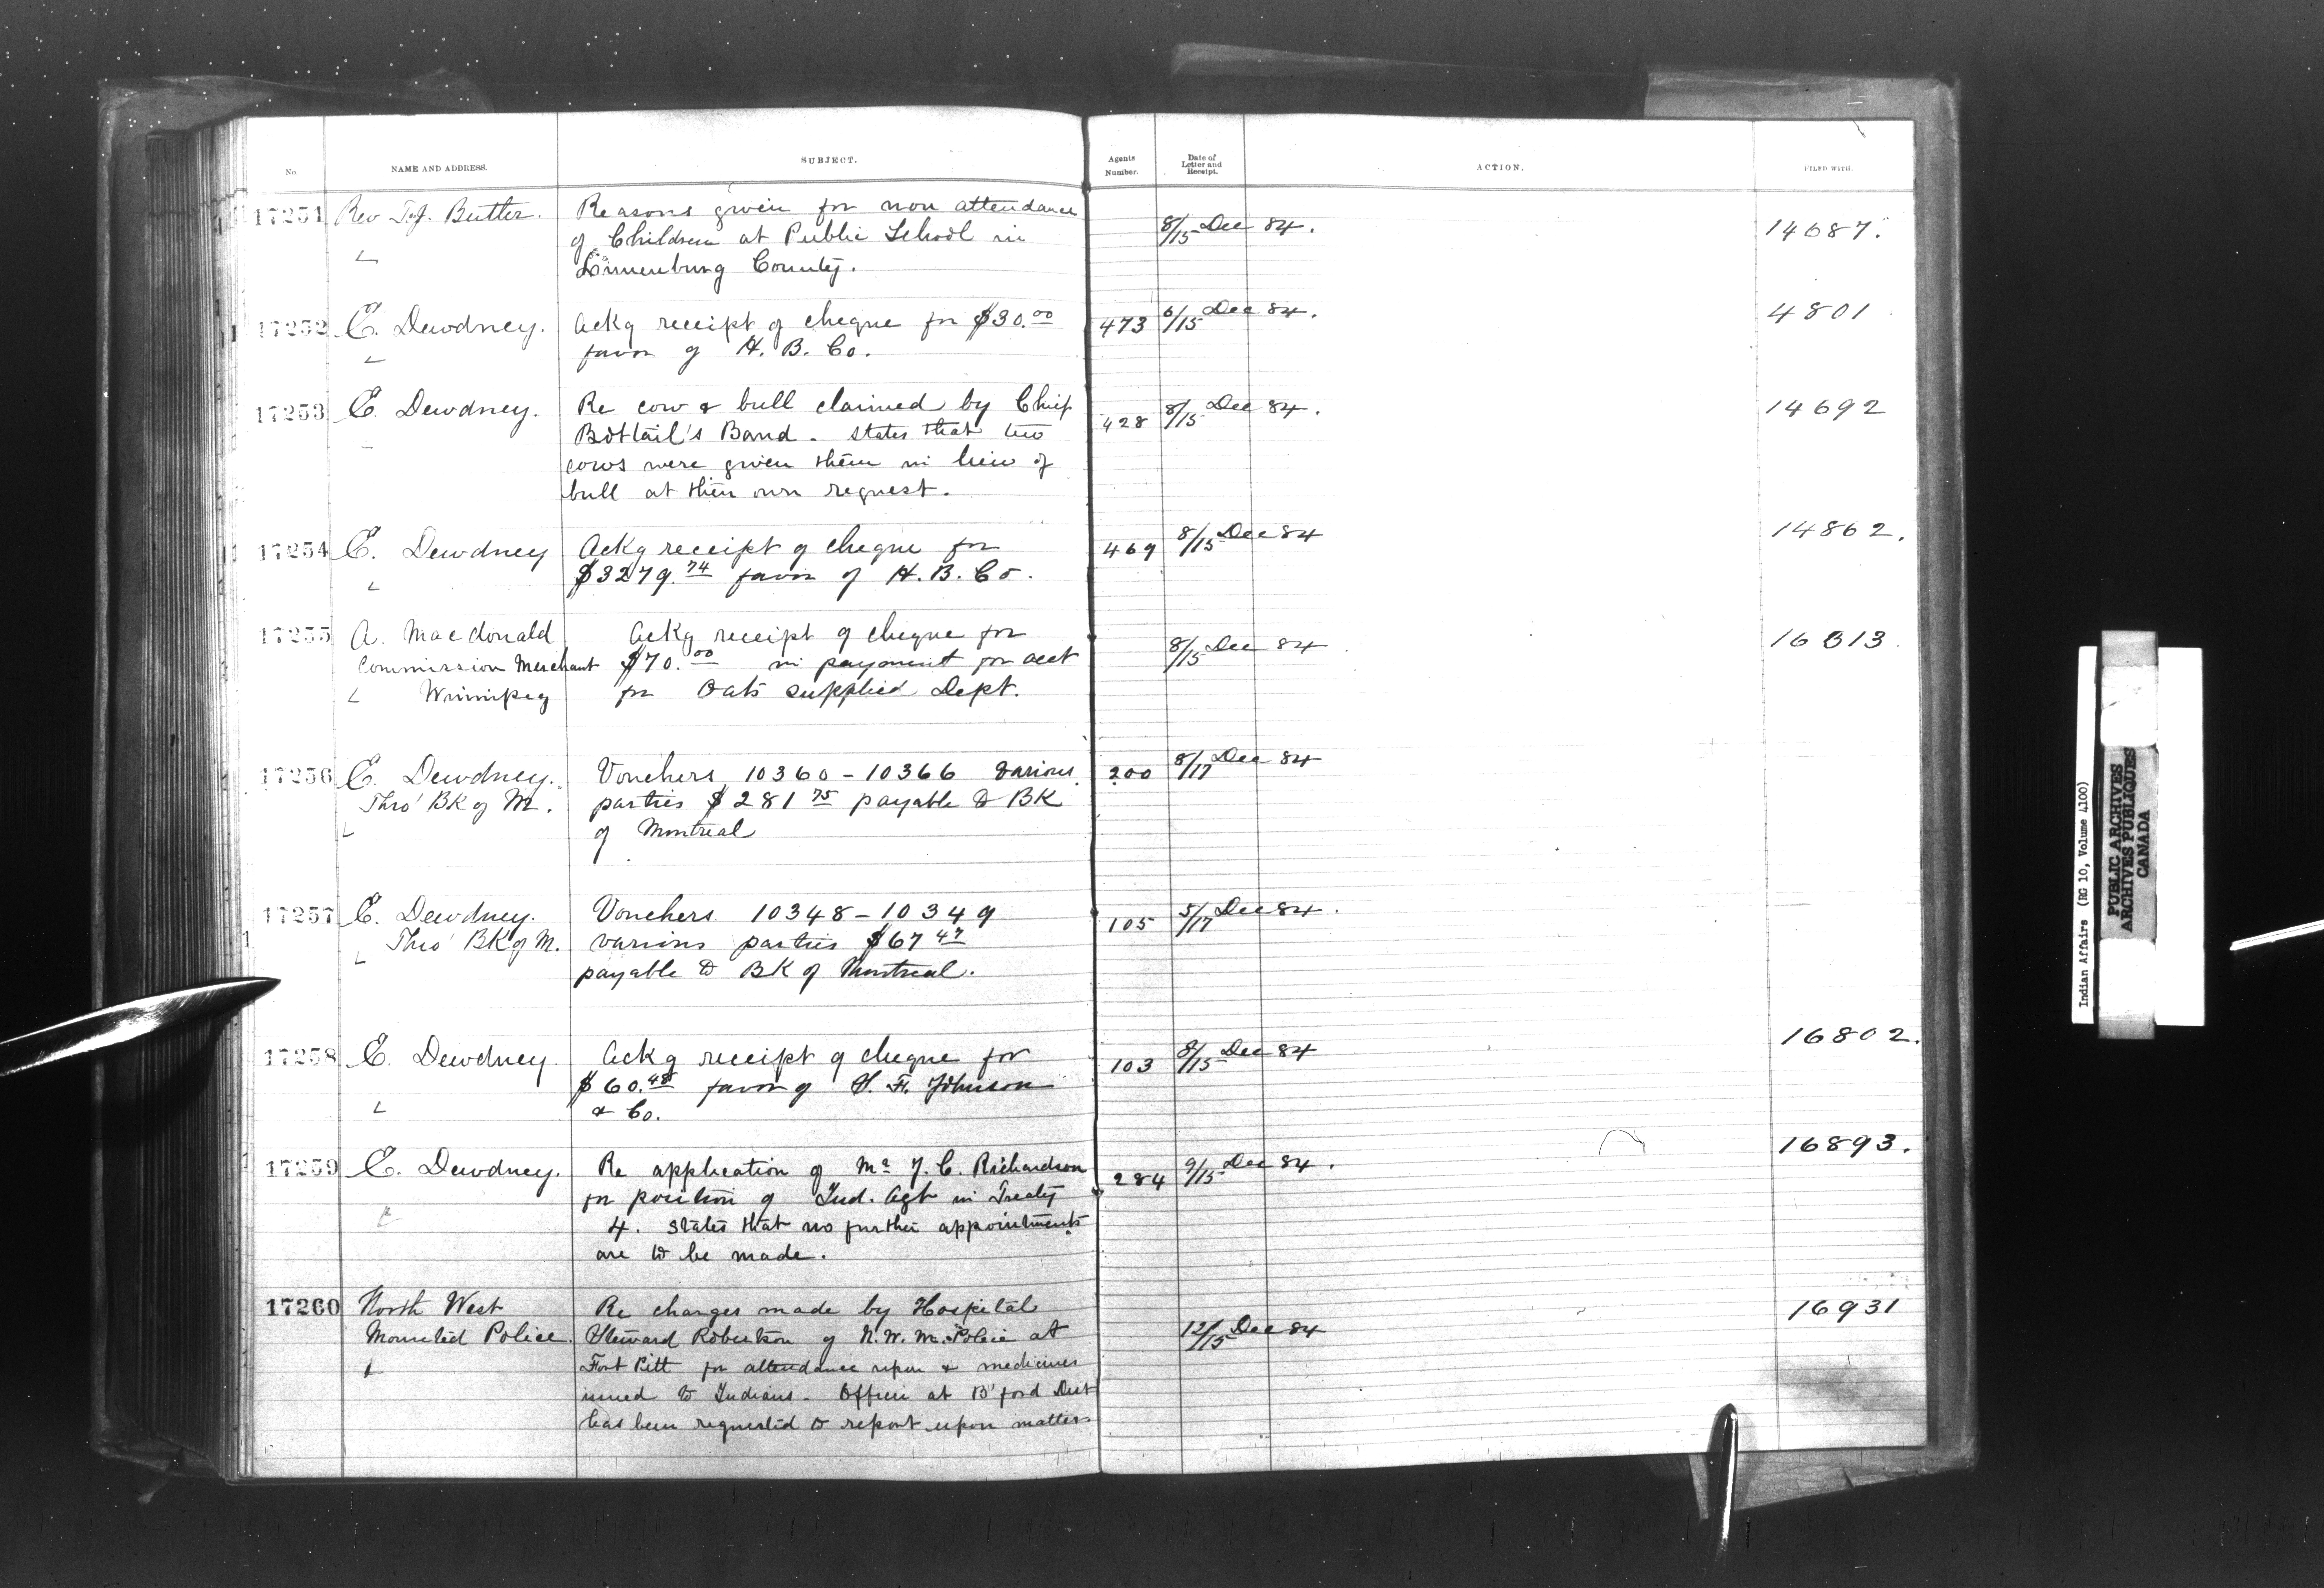 No. NAME AND ADDRESS. SUBJECT. Agents Number. Date of Letter and Receipt. ACTION. FILED WITH.
17251 Rev T.J. Butler. Reasons given for non attendance 8/15 Dec 84. 14687.
of Children at Public School in
Lunenburg County.
17252 E. Dewdney. Ackg receipt of cheque for $30.00 473 6/15 Dec 84. 4801
favor of H. B. Co.
17253 E. Dewdney. Re cow & bull claimed by Chief 428 8/15 Dec 84. 14692
Bobtail's Band. States that two
cows were given them in lieu of
bull at their own request.
17254 E. Dewdney Ackg receipt of cheque for 469 8/15 Dec 84 14862.
$3279.74 favor of H. B. Co.
17255 A. Macdonald Ackg receipt of cheque for 8/15 Dec 84. 16313.
Commission Merchant $70.00 in payment for acct
Winnipeg for Oats supplied Dept.
17256 E. Dewdney. Vouchers 10360 - 10366 various 200 8/17 Dec 84
Thro' BK of M. parties $281 75 payable to BK
of Montreal
17257 E. Dewdney. Vouchers 10348 - 10349 105 5/17 Dec 84.
Thro' BK of M. various parties $67 47
payable to BK of Montreal.
17258 E. Dewdney. Ackg receipt of cheque for 103 8/15 Dec 84 16802.
$60.48 favor of Johnson
& Co.
17259 E. Dewdney. Re application of Mr Richardson 284 9/15 Dec 84. 16893.
for position of Ind. Agt in Treaty
4. States that no further appointments
are to be made.
17260 North West Re charges made by Hospital 12/15 Dec 84 16931
Mounted Police. Steward Robertson of N. W. M. Police at
Fort Pitt for attendance upon & medicines
issued to Indians. Officer at B'ford Dist
has been requested to report upon matter.
Indian Affairs (RG 10, Volume 4100)
PUBLIC ARCHIVES
ARCHIVES PUBLIQUES
CANADA